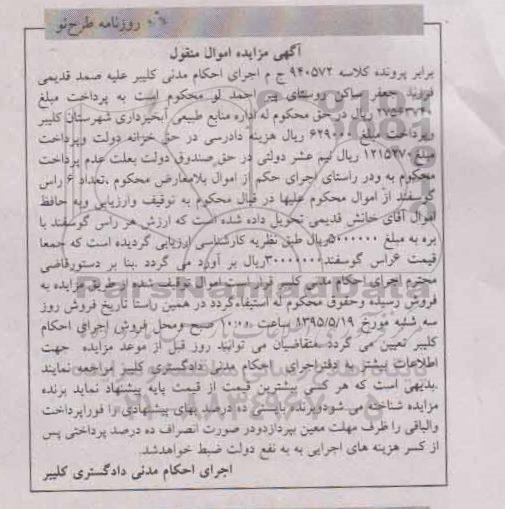 روزنامه طرح نو
آگهی مزایده اموال منقول
برابر پرونده کلاسه ۹۴۰۵۷۲ ج م اجرای احکام مدنی کلیبر علیه صمد قدیمی
فرزند جعفر ساکن روستای پیر احمد لو محکوم است به پرداخت مبلغ
ریال در حق محکوم له اداره منابع طبیعی آبخیزداری شهرستان کلیبر
وپرداخت مبلغ ۶۲۹۰۰۰ ریال هزینه دادرسی در حق خزانه دولت وپرداخت
مبلغ ۱۲۱۵۲۷۰ ریال نیم عشر دولتی در حق صندوق دولت بعلت عدم پرداخت
محکوم به ودر راستای اجرای حکم از اموال بلامعارض محکوم ،تعداد ۶ راس
گوسفند از اموال محکوم علیها در قبال محکوم به توقیف وارزیابی وبه حافظ
اموال آقای خانش قدیمی تحویل داده شده است که ارزش هر راس گوسفند با
بره به مبلغ ۵۰۰۰۰۰۰ریال طبق نظریه کارشناسی ارزیابی گردیده است که جمعا
قیمت ۶راس گوسفند۳۰۰۰۰۰۰۰ریال بر آورد می گردد .بنا بر دستورقاضی
محترم اجرای احکام مدنی کلیبر قرار است اموال توقیف شده از طریق مزایده به
فروش رسیده وحقوق محکوم له استیفاء گردد در همین راستا تاریخ فروش روز
سه شنبه مورخ ۱۳۹۵/۵/۱۹ ساعت ۱۰:۰۰ صبح ومحل فروش اجرای احکام
کلیبر تعیین می گردد .متقاضیان می توانند روز قبل از موعد مزایده جهت
اطلاعات بیشتر به دفتراجرای احکام مدنی دادگستری کلیبر مراجعه نمایند
.بدیهی است که هر کسی بیشترین قیمت از قیمت پایه پیشنهاد نماید برنده
مزایده شناخته می شودوبرنده بایستی ده درصد بهای پیشنهادی را فوراپرداخت
والباقی را ظرف مهلت معین بپردازدودر صورت انصراف ده درصد پرداختی پس
از کسر هزینه های اجرایی به به نفع دولت ضبط خواهدشد.
اجرای احکام مدنی دادگستری کلیبر